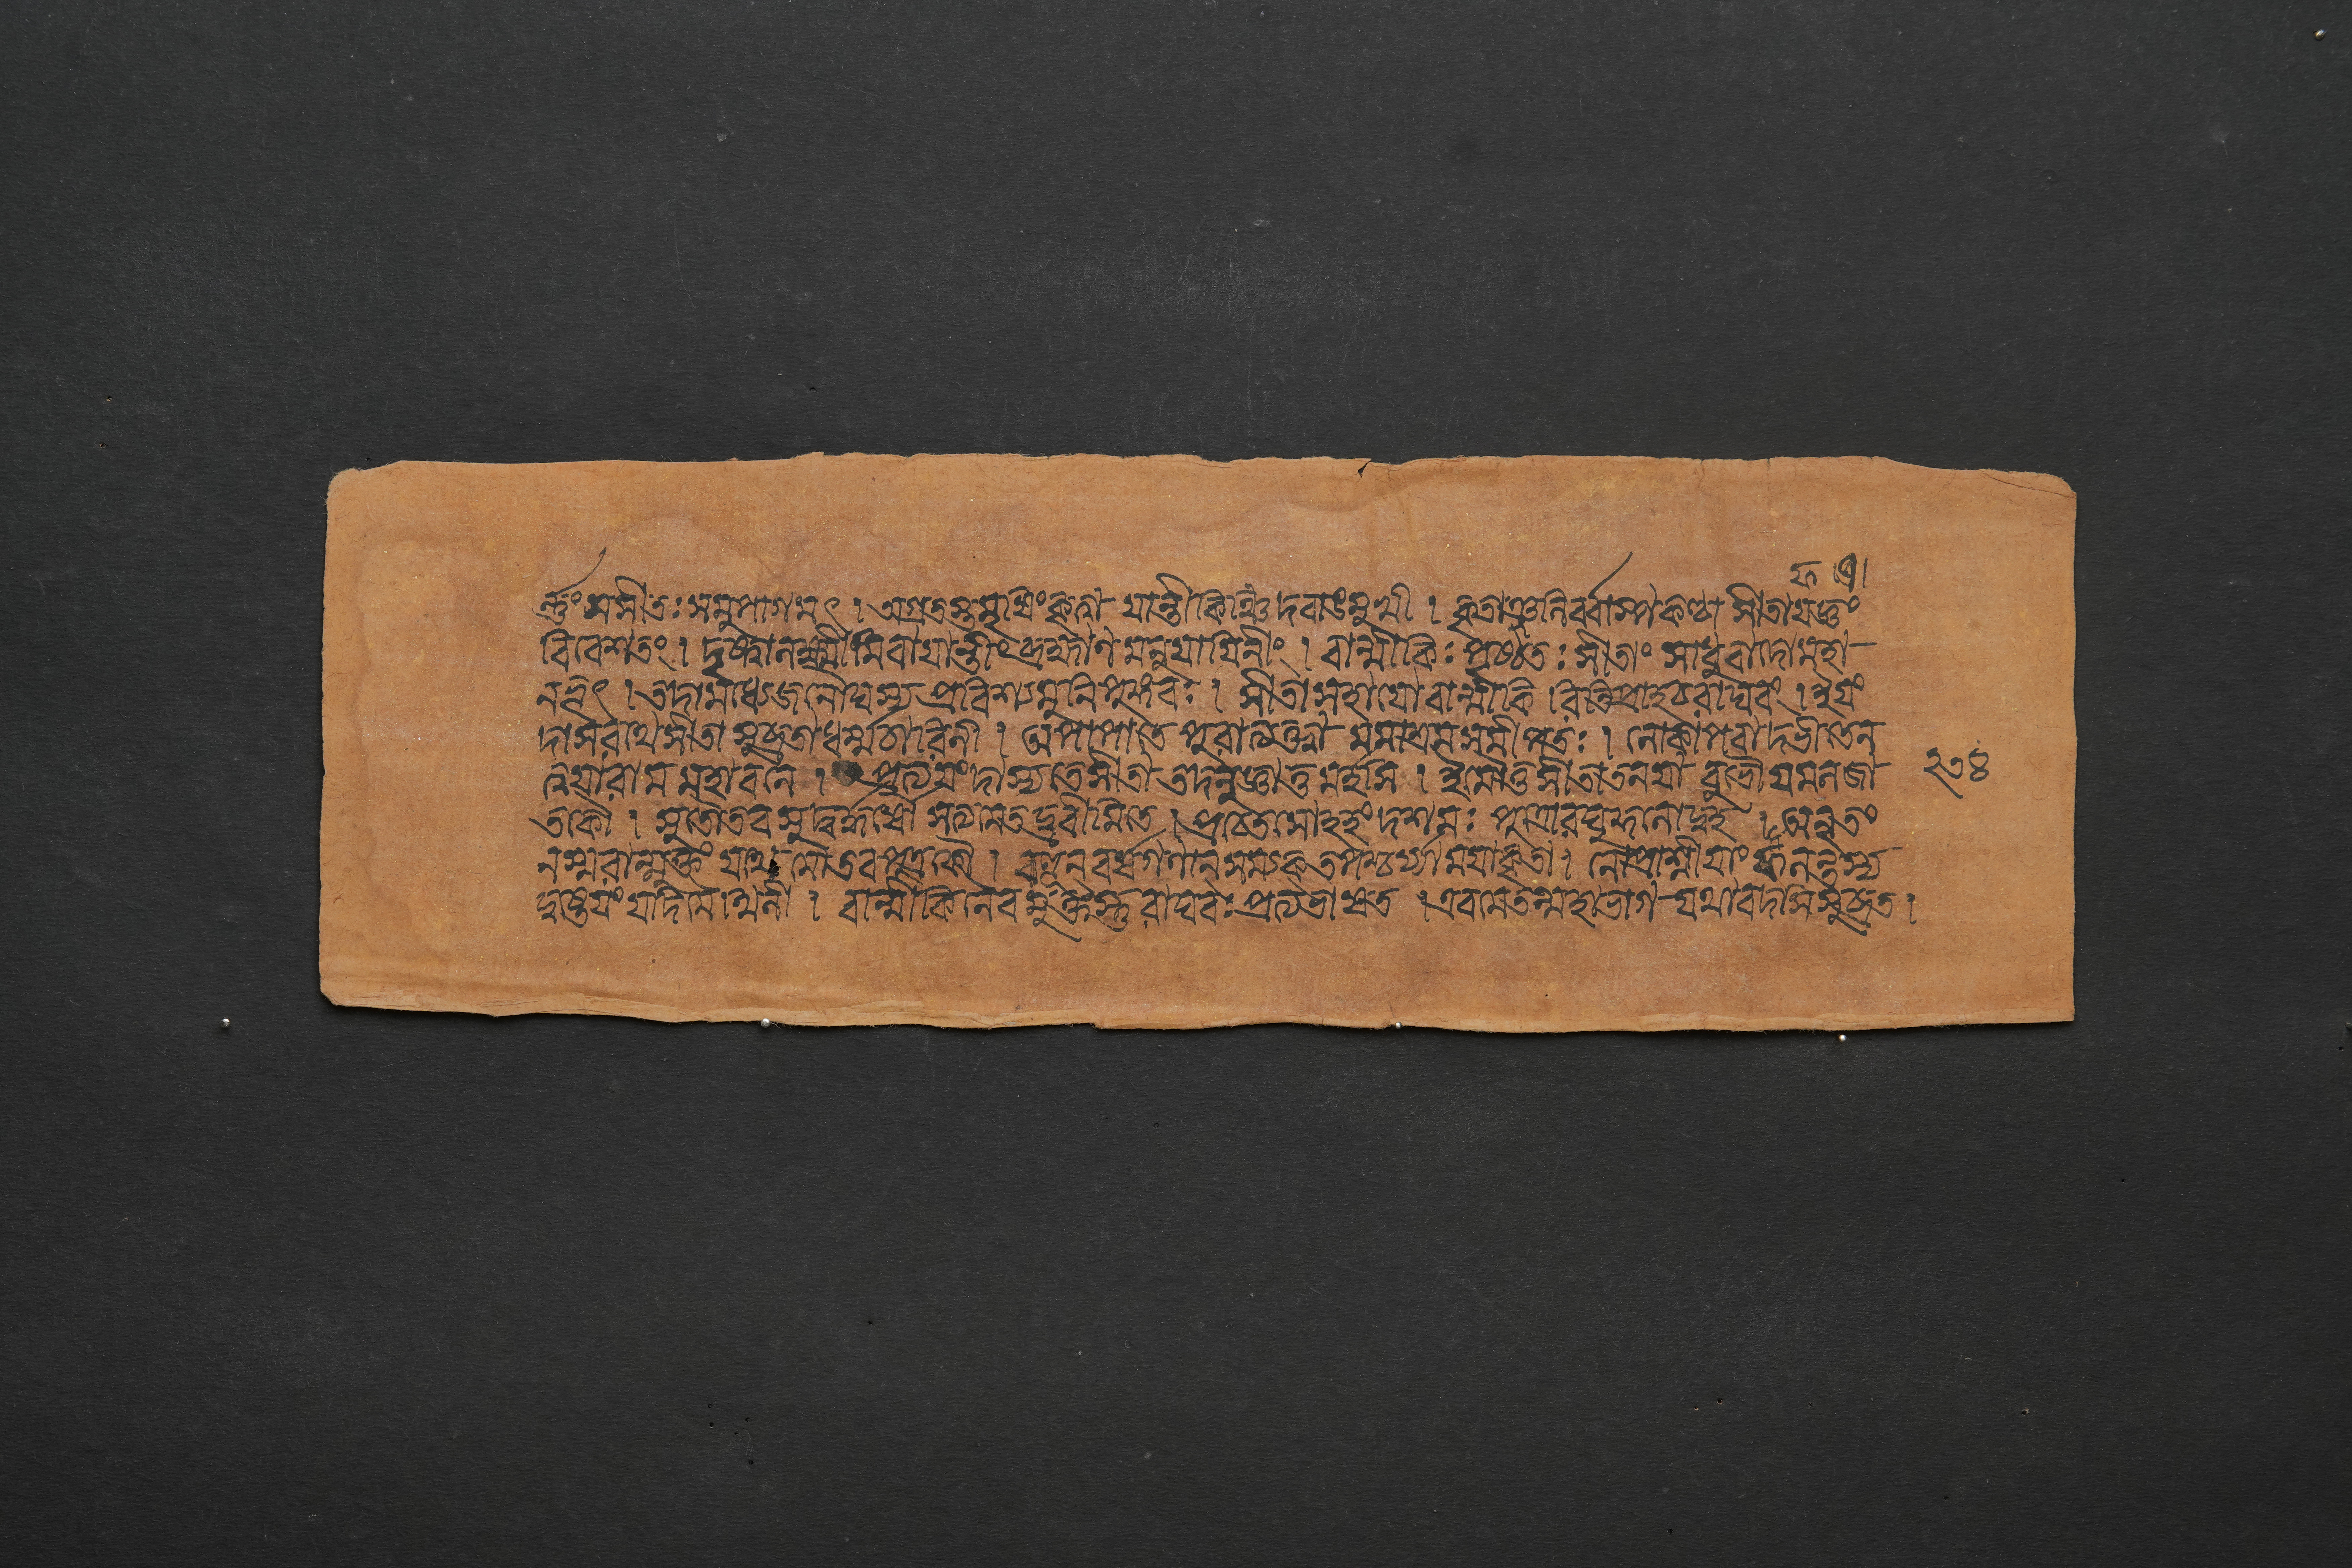 ন্তুং সমীতঃ সমুপাগমৎ । অগ্রতস্তমৃষিং কৃত্বা যান্তী কিঞ্চিদবাঙমুখী । কৃতাঞ্জনির্বাস্পকণ্ঠা সীতা যজ্ঞং
বিবেশতং । দৃষ্ট্বা নক্ষ্মীমিবায়ান্তীং ব্রহ্মাণমনুযায়িনীং । বান্মীকেঃ পৃষ্ঠতঃ সীতাং সাধুবাদো মহা
নভূৎ । তদা মধ্যে জনৌঘস্য প্রবিশ্য মুনিপুঙ্গবঃ । সীতা সহায়ো বান্মীকিরিতি প্রাহ চ রাঘবং । ইয়ং
দাসরথে সীতা সুব্রতা ধর্ম্মচারিনী । অপাপা তে পুরা ত্যক্তা মমাশ্রমসমীপতঃ । নোকাপবাদভীতেন
ত্বয়া রাম মহাবনে । প্রত্যয়ং দাস্যতে সীতা তদনুজ্ঞাতুমর্হসি । ইমৌ তু সীতাতনয়া বুভৌ যমনজা
তকৌ । সুতৌ তব সুদুর্দ্ধর্ষৌ সত্যমেতদ্ব্রবীমি তে । প্রচেতসোহহং দশমঃ পুত্রো রঘুনোদ্বহ । অনৃতং
ন স্মরাম্যুক্তং যথেমৌ তব পুত্রকৌ । বহূন বর্ষগণান সম্যক্ তপশ্চর্য্যা ময়া কৃতা । নোপাশ্নীয়াং ফনন্তস্য
দুষ্টেয়ং যদি মৈথিনী । বান্মীকিনৈবমুক্তস্তু রাঘবঃ প্রত্যভাষত । এবমেতন্মহাভাগ যথা বদসি সুব্রত ।
২৭৪